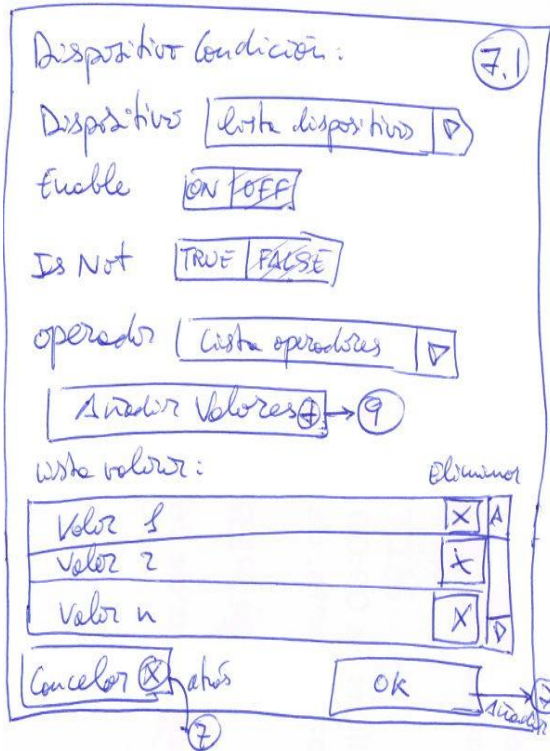 Dispositivo Condición:
7.1
Dispositivo Lista dispositivos
Enable ON OFF
Is Not TRUE FALSE
operador Lista operadores
Añadir Valores + → 9
Lista valores: Eliminar
Valor 1 X
Valor 2 X
Valor n X
Cancelar X atrás OK Añadir 7
7